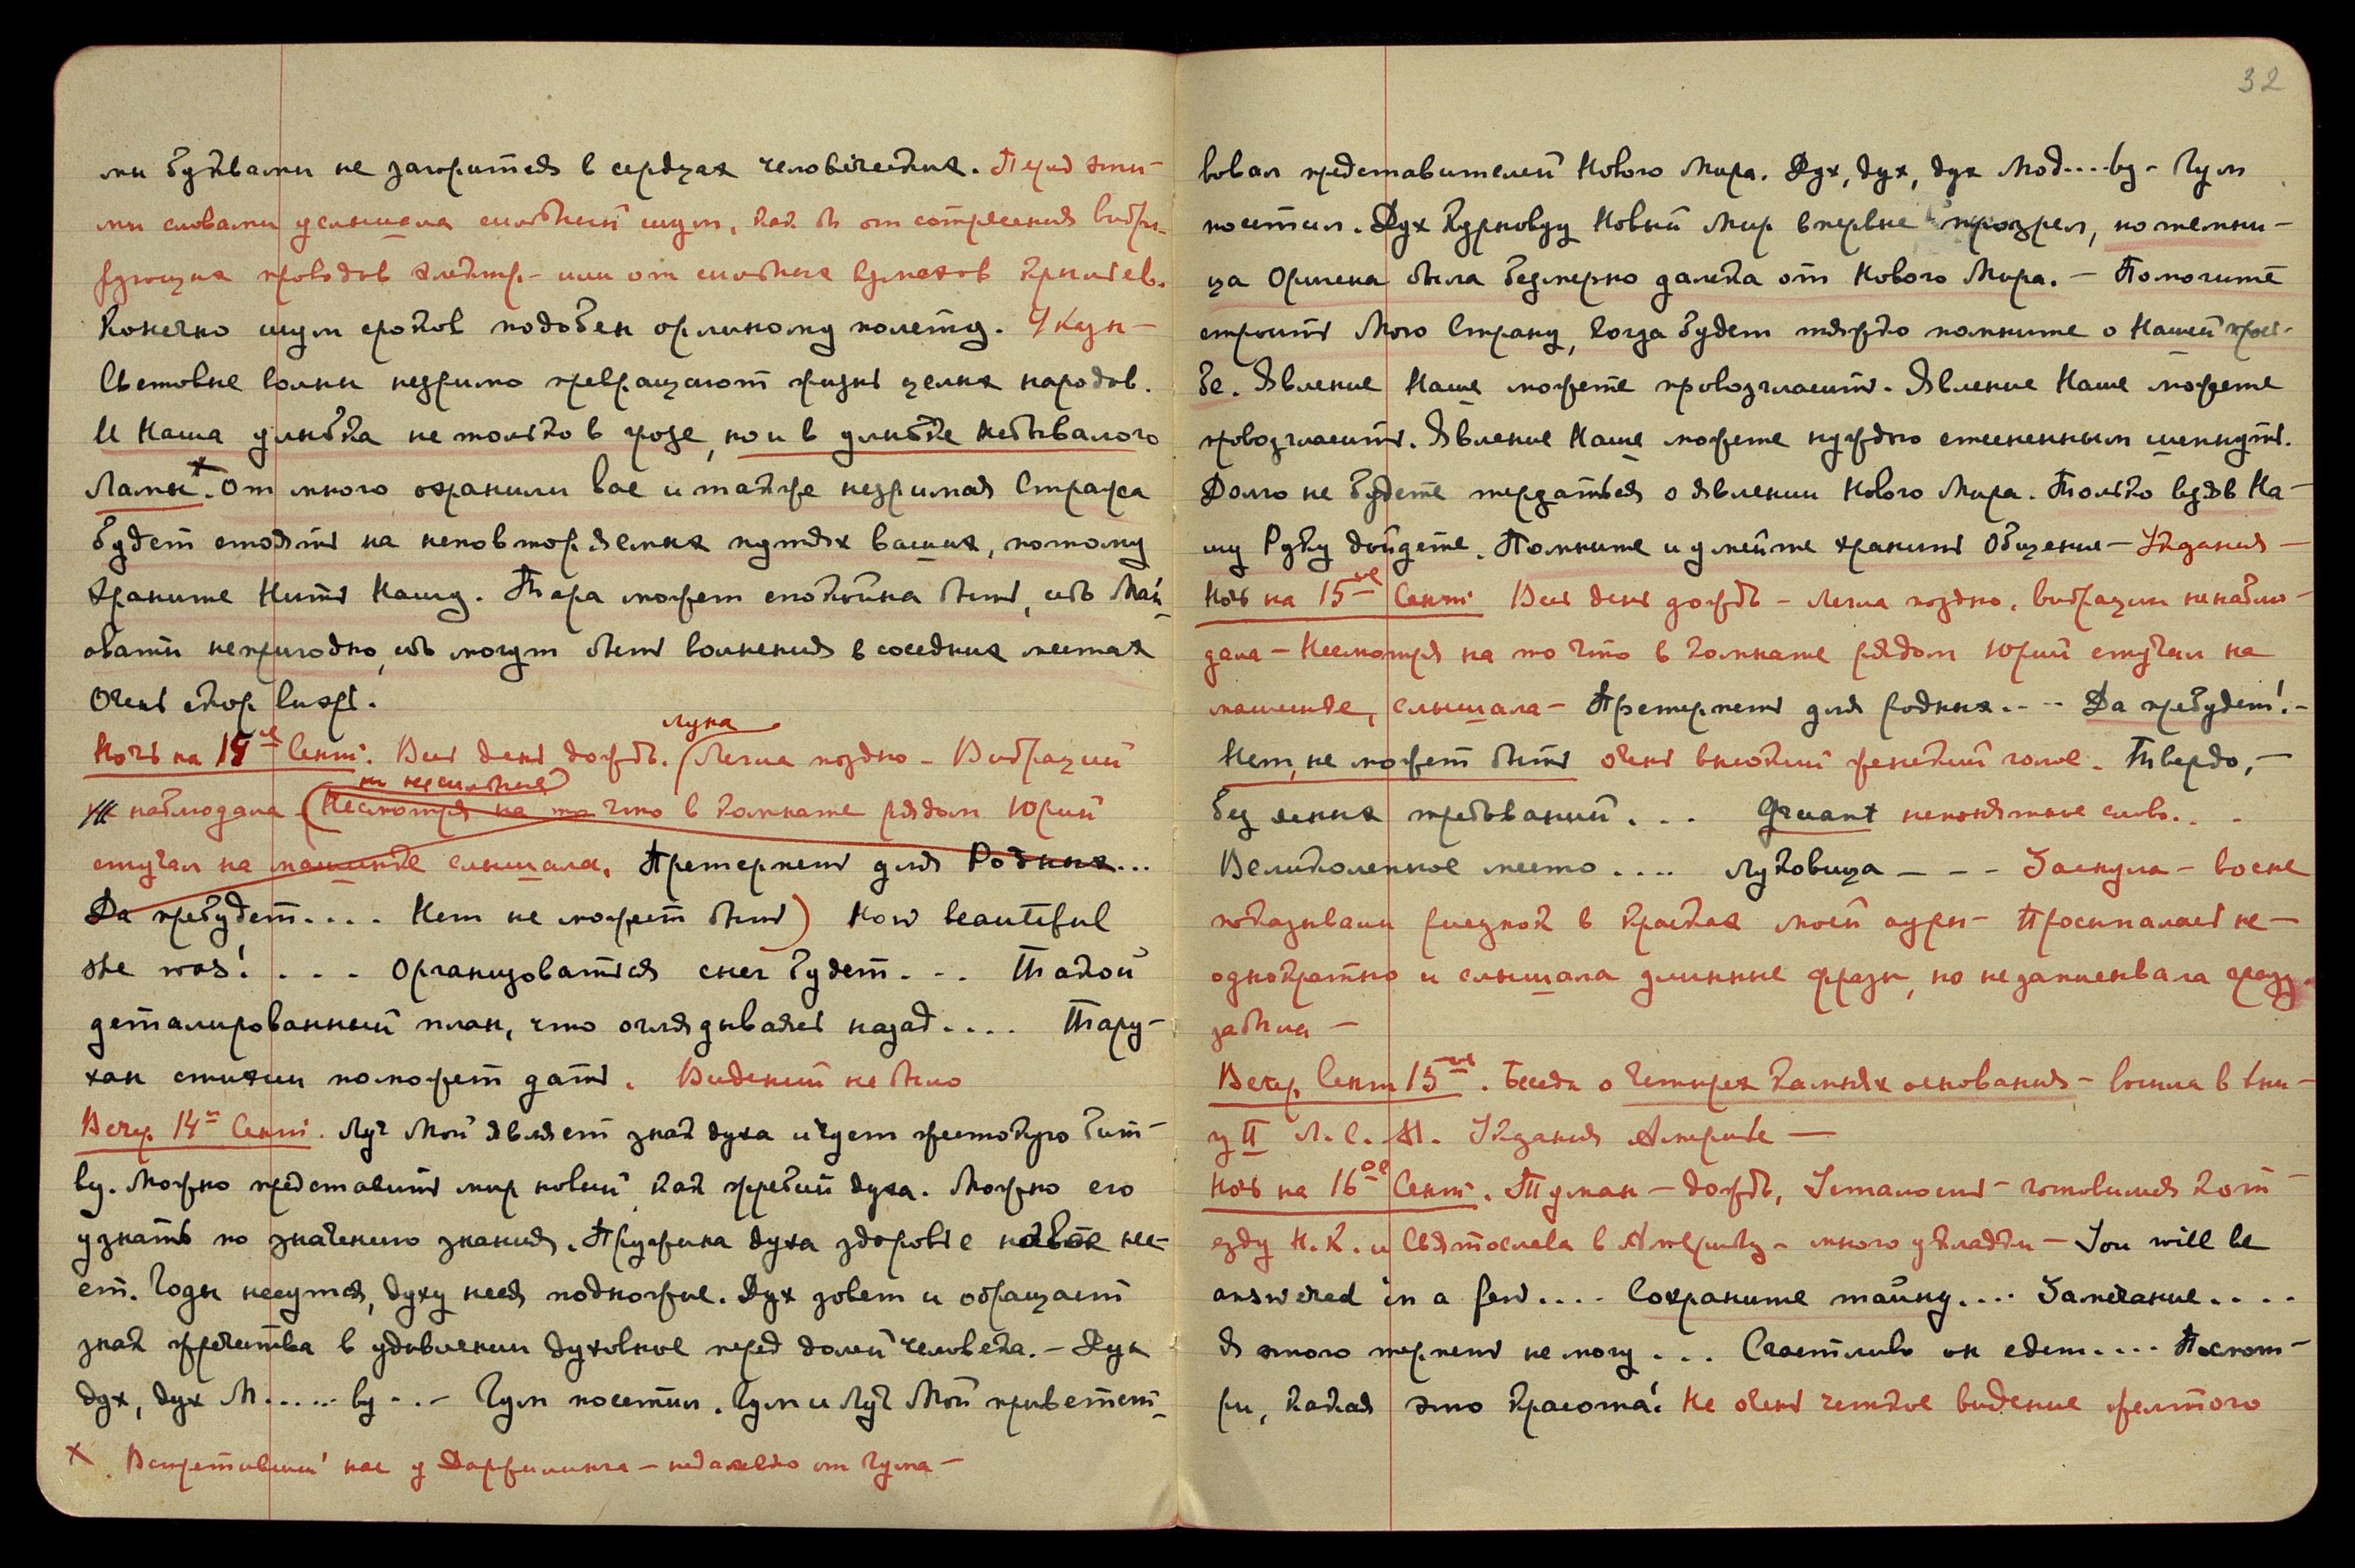 32
ми буквами не загорится в сердцах человеческих. Перед эти-
ми словами услышала сильный шум, как бы от сотрясения вибри-
рующих проводов электр- или от сильных взмахов крыльев.
Конечно шум сроков подобен орлиному полету. Указ-
Световые волны незримо превращают жизнь целых народов.
И Наша улыбка не только в грозе, но и в улыбке небывалого
Ламы x. От много охранили вас и также незримая Стража
будет стоять на неповторяемых путях ваших, потому
храните Нить Нашу. Тара может спокойна быть, ибо
овать непригодно, ибо могут быть волнения в соседних местах
Очень скор вихрь.
Ночь на 14ое Сент. Весь день дождь. (Легла поздно - Вибраций
луна
наблюдала (Несмотря на то что в комнате рядом Юрий
стучал на машинке слышала. Претерпеть для Родных...
Да пребудет.... Нет не может быть) How beautiful
she was! ... Организоваться снег будет... Такой
детализированный план, что оглядываясь назад.... Тару-
хан стихии поможет дать. Видений не было
Вечер 14е Сент. Луч Мой являет знак духа и чует жестокую бит-
ву. Можно представить мир новый, как жребий духа. Можно его
узнать по значению знания. Пружина духа здоровье новое не-
ет. Годы несутся, духу неся подножие. Дух зовет и обращает
знак жречества в удивлении духовное перед долей человека. - Дух
дух, дух М...... ву ... - Гум посетил. Гум и Луч Мой приветст-
x Встретивший нас у Дарджилинга - недалеко от Гума -
вовал представителей Нового Мира. Дух, дух, дух Мод....ву - Гум
посетил. Дух Курновуу Новый Мир впервые прозрел, но темни-
ца Оригена была безмерно далека от Нового Мира. - Помогите
строить Мою Страну, когда будет тяжко помните о Нашей прось-
бе. Явление Наше можете провозгласить. Явление Наше можете
провозгласить. Явление Наше можете нуждою стесненным шепнуть.
Долго не будете терзаться о явлении Нового Мира. Только взяв На-
шу Руку дойдете. Помните и умейте хранить Общение - Указания -
Ночь на 15ое Сент. Весь день дождь - Легла поздно, вибрации не наблю-
дала - Несмотря на то что в комнате рядом Юрий стучал на
машинке, слышала - Претерпеть для родных.... Да пребудет! -
Нет, не может быть очень высокий женский голос. Твердо, -
без ясных требований... Gruant непонятное слово...
Великолепное место.... Луковица - - - Заснула - во сне
показывали рисунок в красках моей ауры - Просыпалась не-
однократно и слышала длинные фразы, но не записывала сразу
забыла -
Вечер Сент 15ое. Беседа о четырех камнях основания - вошла в кни-
гу II Л. С. М. Указания Америке -
Ночь на 16ое Сент. Туман - дождь, Усталость - готовимся к от-
езду Н. К. и Святослава в Америку - много укладки - You will be
answered in a few.... Сохраните тайну.... Замечание....
Я этого терпеть не могу... Счастливо он едет.... Посмот-
ри, какая это красота! Не очень четкое видение желтого